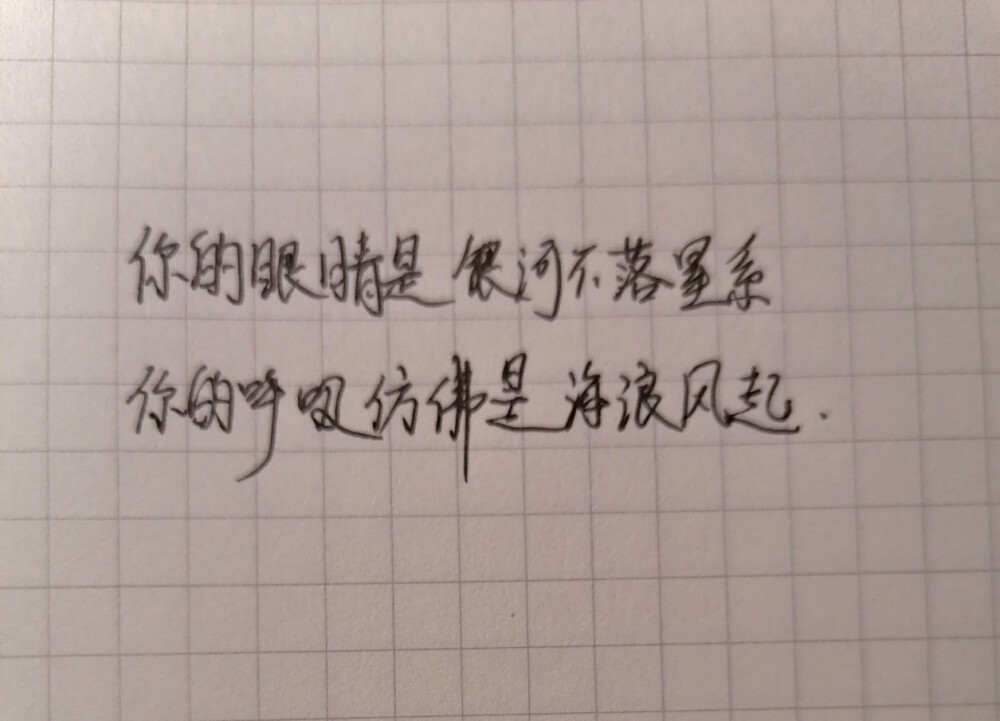 你的眼睛是银河不落星系
你的呼吸仿佛是海浪风起.